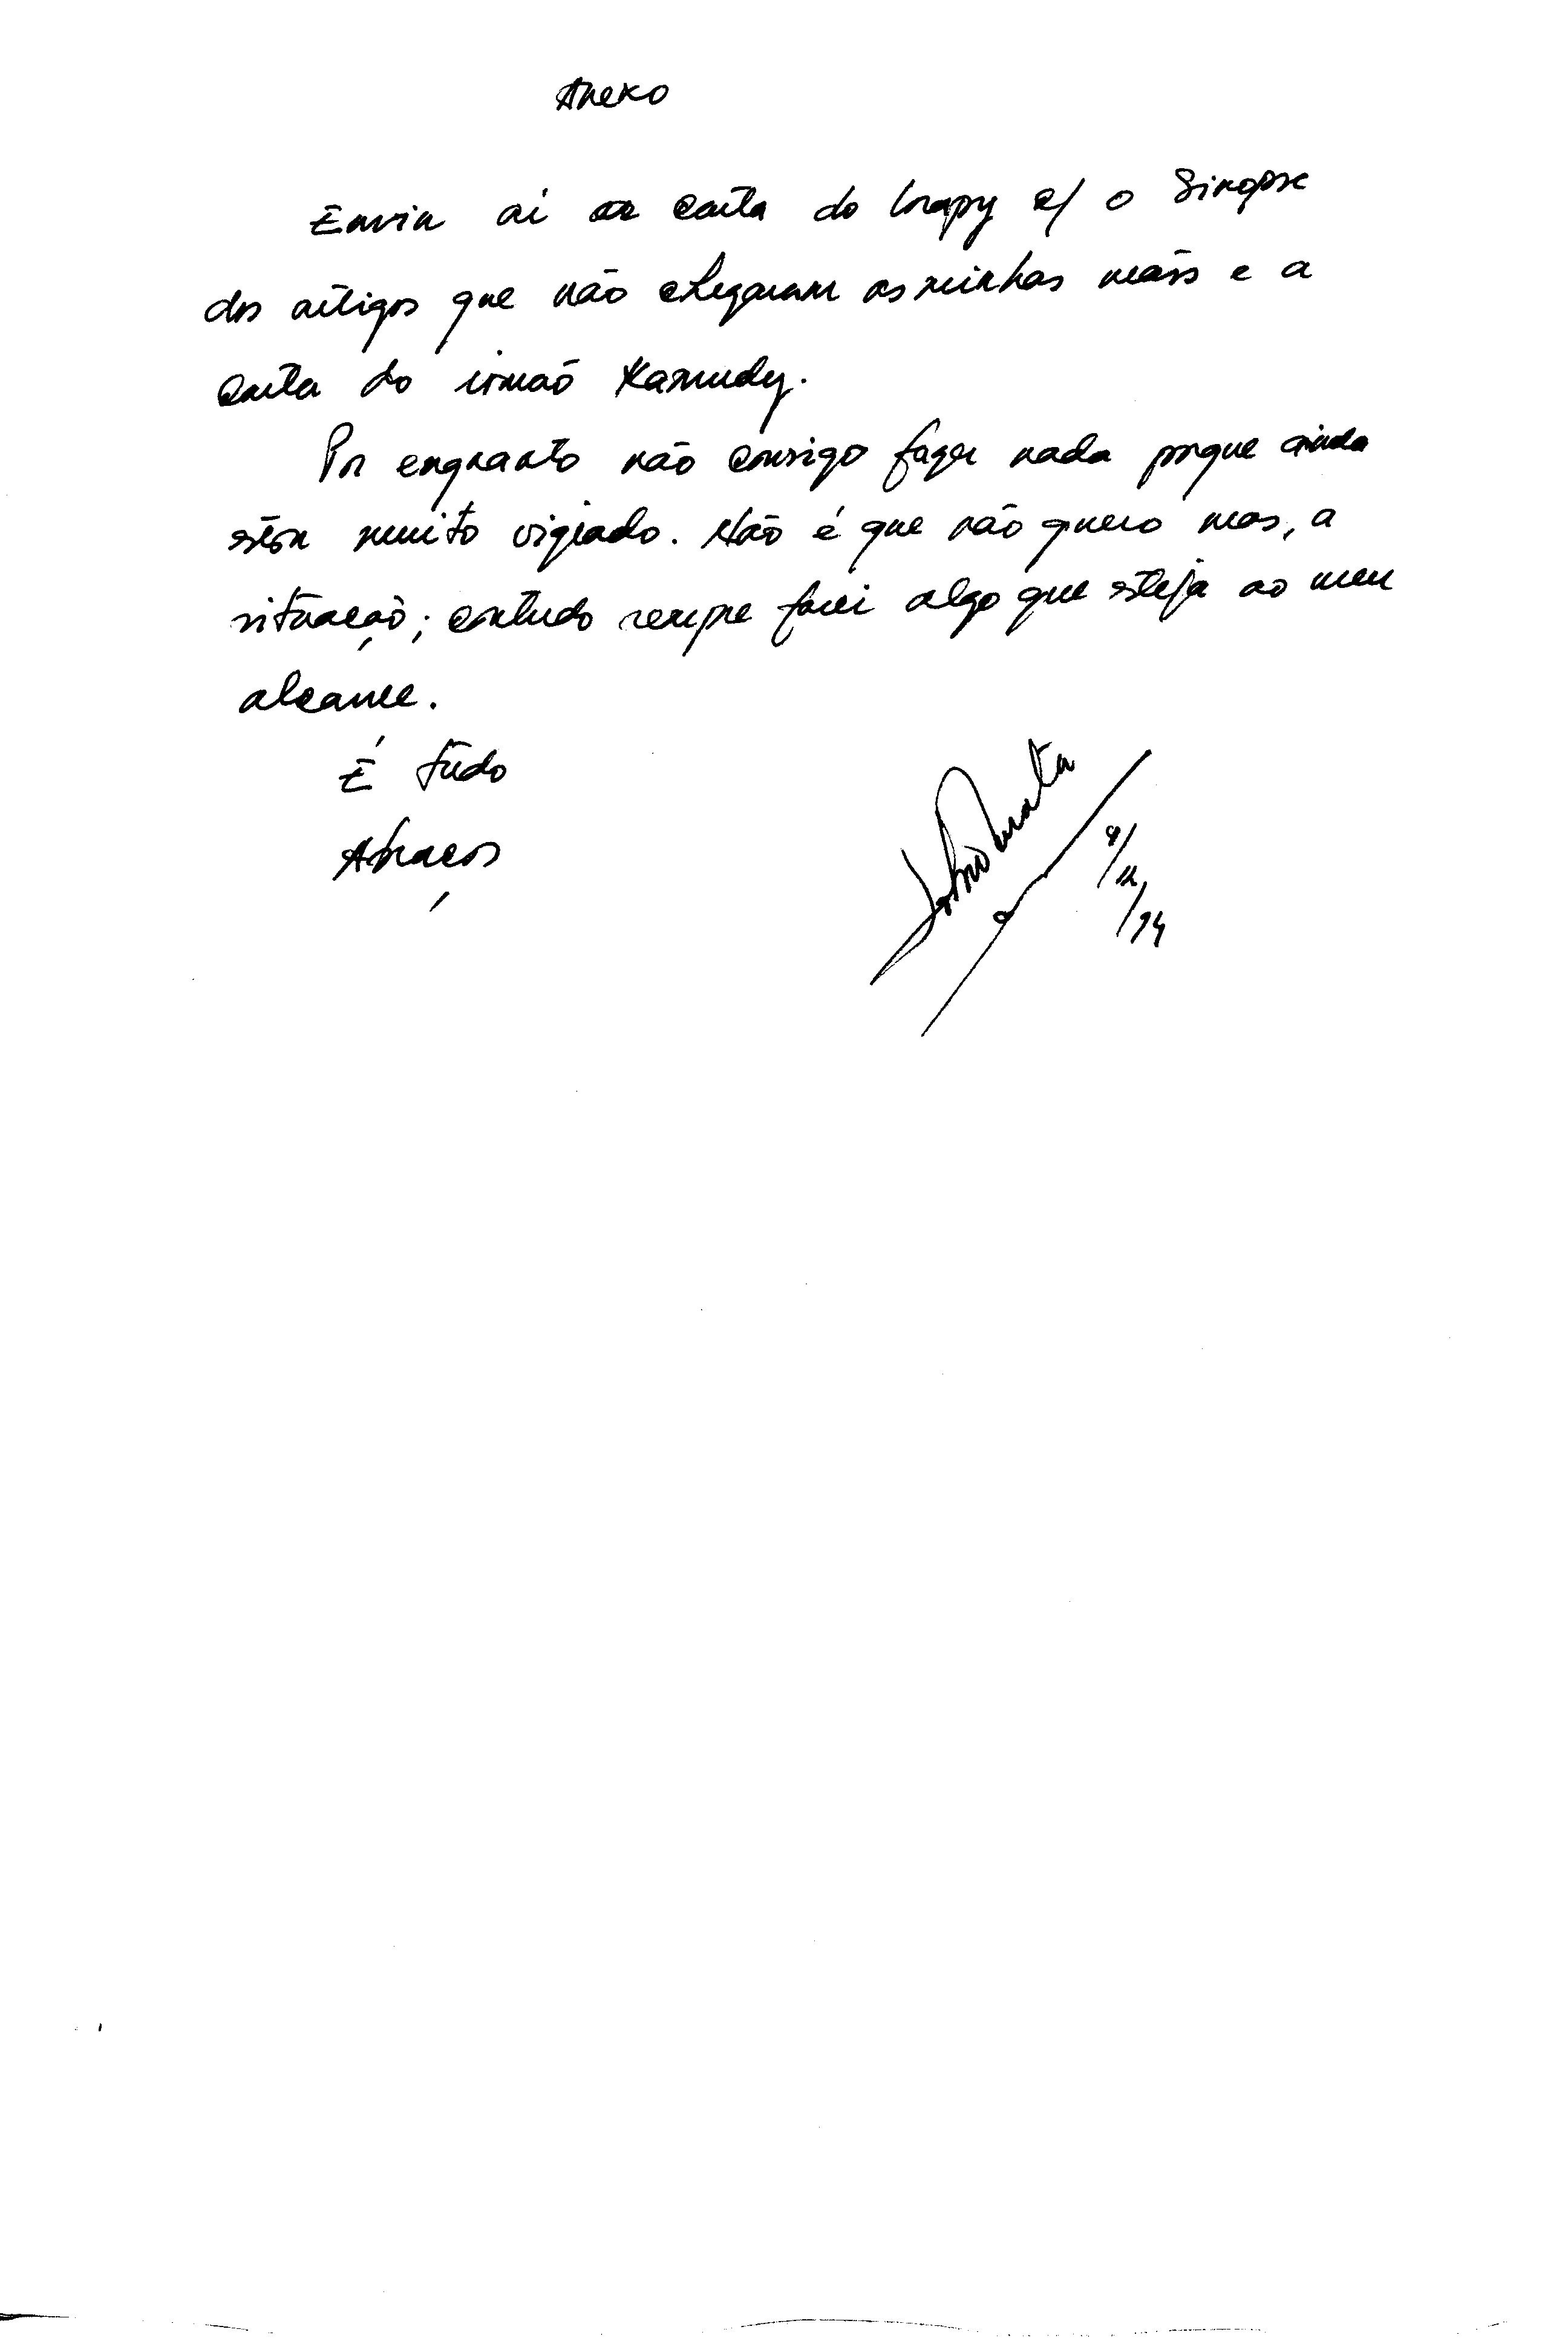 Anexo
Envio aí a carta do c/ o Sinopse
dos artigos que não chegaram as minhas mãos e a
carta do irmão Kamudy.
Por enquanto não consigo fazer nada porque ainda
estou muito vigiado. Não é que não quero mas, a
situação; contudo sempre farei algo que esteja ao meu
alcance.
É tudo
Abraços